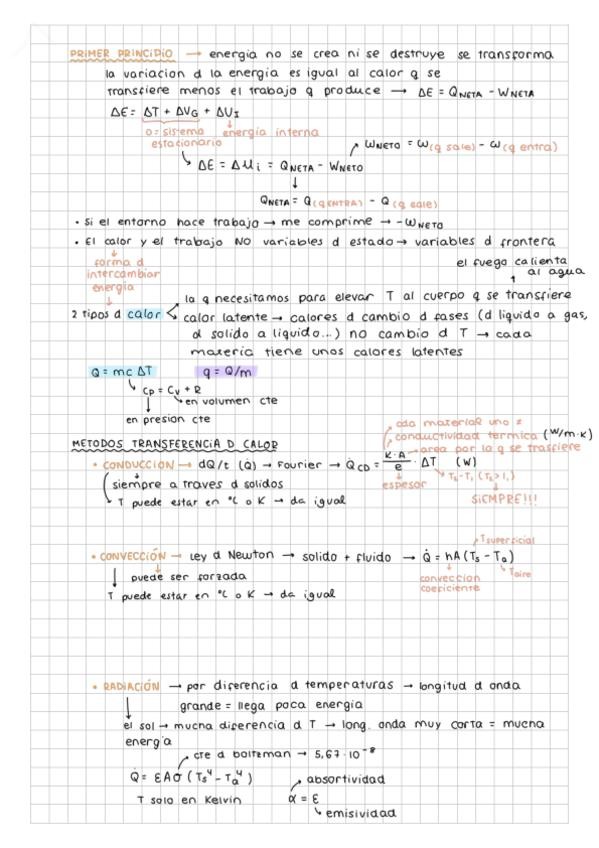 PRIMER PRINCIPIO → energia no se crea ni se destruye se transforma
la variacion d la energia es igual al calor q se
transfiere menos el trabajo q produce → ΔE = QNETA - WNETA
ΔE = ΔT + ΔVG + ΔUI
0 = sistema estacionario
energia interna
WNETO = W(q sale) - W(q entra)
ΔE = Δui = QNETA - WNETO
QNETA = Q(q ENTRA) - Q(q sale)
• Si el entorno hace trabajo → me comprime → -WNETO
• El calor y el trabajo NO variables d estado → variables d frontera
forma d
intercambiar
energia
el fuego calienta
al agua
la q necesitamos para elevar T al cuerpo q se transfiere
2 tipos d calor
calor latente → calores d cambio d fases (d liquido a gas,
d solido a liquido...) no cambio d T → cada
materia tiene unos calores latentes
Q = mc ΔT q = Q/m
Cp = Cv + R
en volumen cte
en presion cte
METODOS TRANSFERENCIA D CALOR
cada material uno ≠
conductividad termica (W/m·K)
area por la q se trasfiere
• CONDUCCION → dQ/t (Q̇) → Fourier → Q̇CD = K·A/e · ΔT (W)
siempre a traves d solidos
espesor
T2-T1 (T2>T1)
SIEMPRE!!!
T puede estar en °C o K → da igual
T superficial
• CONVECCIÓN → Ley d Newton → solido + fluido → Q̇ = hA (Ts - Ta)
puede ser forzada
conveccion
coeficiente
Taire
T puede estar en °C o K → da igual
• RADIACIÓN → por diferencia d temperaturas → longitud d onda
grande = llega poca energia
el sol → mucha diferencia d T → long. onda muy corta = mucha
energia
cte d boltzman → 5,67·10⁻⁸
Q̇ = εAσ (Ts⁴ - Ta⁴)
absortividad
T solo en Kelvin
α = ε
emisividad